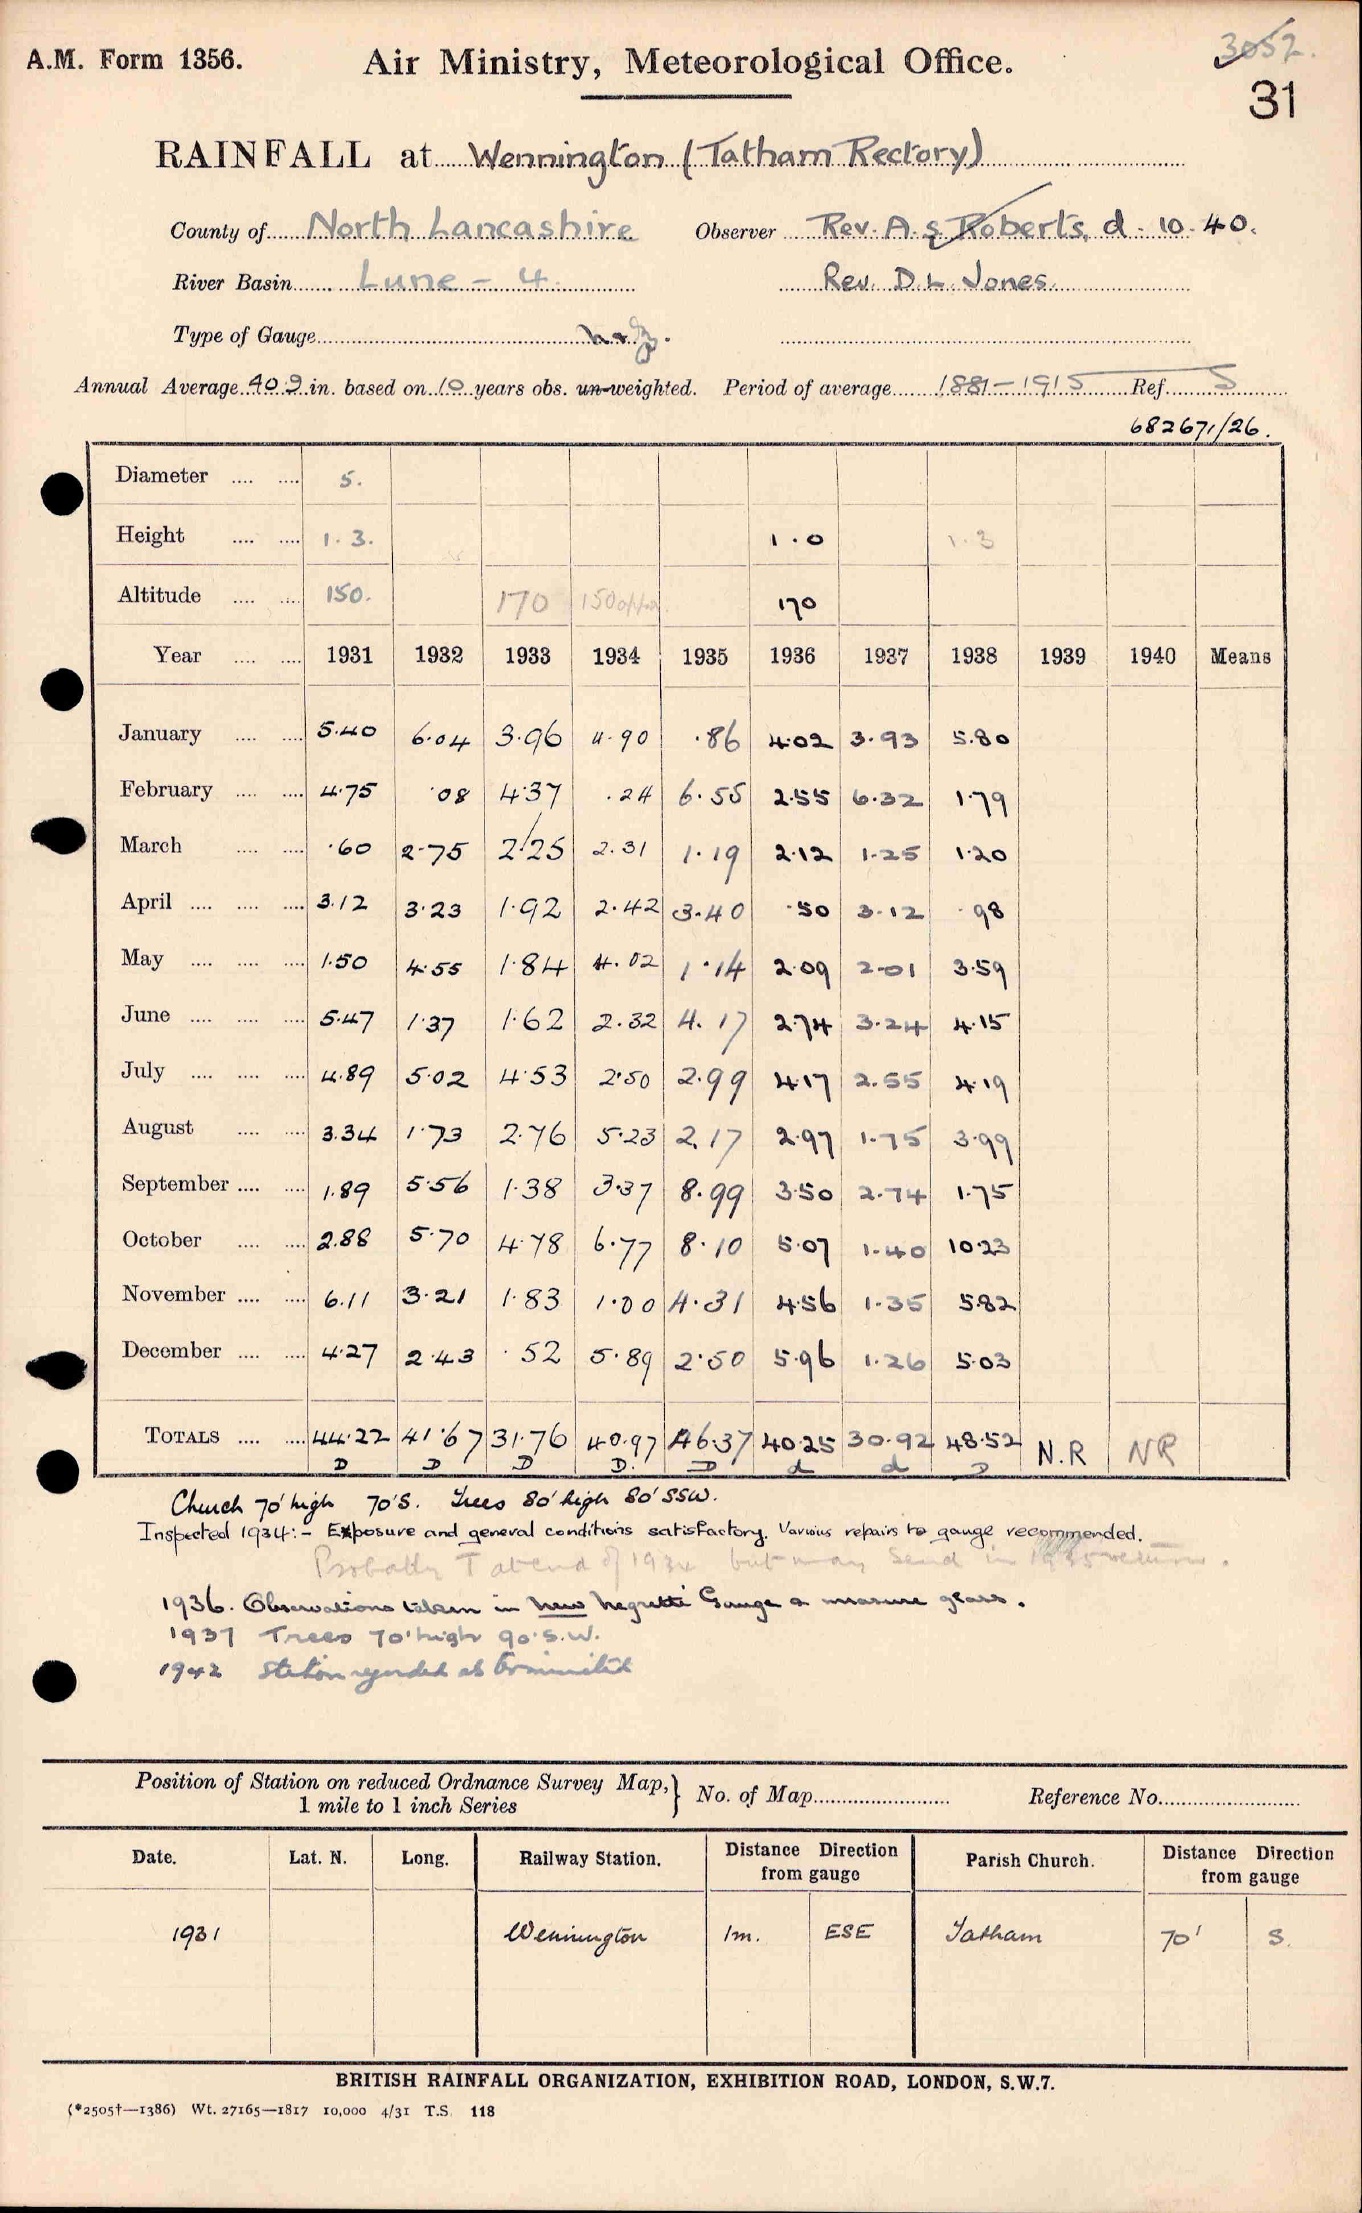 A.M. Form 1356.
Air Ministry, Meteorological Office.
3052.
31
RAINFALL at Wennington (Tatham Rectory)
County of North Lancashire Observer Rev. A. S. Roberts, d. 10.40.
River Basin Lune - 4 Rev. D. L. Jones.
Type of Gauge
Annual Average 40.9 in. based on 10 years obs. un-weighted. Period of average 1881-1915 Ref. S
682671/26.
Diameter 5.
Height 1.3. 1.0 1.3
Altitude 150. 170 150 170
Year 1931 1932 1933 1934 1935 1936 1937 1938 1939 1940 Means
January 5.40 6.04 3.96 4.90 .86 4.02 3.93 5.80
February 4.75 .08 4.37 .24 6.55 2.55 6.32 1.79
March .60 2.75 2.25 2.31 1.19 2.12 1.25 1.20
April 3.12 3.23 1.92 2.42 3.40 .50 3.12 .98
May 1.50 4.55 1.84 4.02 1.14 2.09 2.01 3.59
June 5.47 1.37 1.62 2.32 4.17 2.74 3.24 4.15
July 4.89 5.02 4.53 2.50 2.99 4.17 2.55 4.19
August 3.34 1.73 2.76 5.23 2.17 2.97 1.75 3.99
September 1.89 5.56 1.38 3.37 8.99 3.50 2.74 1.75
October 2.88 5.70 4.78 6.77 8.10 5.07 1.40 10.23
November 6.11 3.21 1.83 1.00 4.31 4.56 1.35 5.82
December 4.27 2.43 .52 5.89 2.50 5.96 1.26 5.03
TOTALS 44.22 41.67 31.76 40.97 46.37 40.25 30.92 48.52 N.R NR
D D D D. D d d D
Church 70' high 70' S. Trees 80' high 80' SSW.
Inspected 1934:- Exposure and general conditions satisfactory. Various repairs to gauge recommended.
Probably T at end of 1934 but may send in 1935 return.
1936. Observations taken in New Negretti Gauge & measure glass.
1937 Trees 70' high 90' S.W.
1942 Station regarded as terminated
Position of Station on reduced Ordnance Survey Map, 1 mile to 1 inch Series } No. of Map Reference No.
Date. Lat. N. Long. Railway Station. Distance Direction from gauge Parish Church. Distance Direction from gauge
1931 Wennington 1m. ESE Tatham 70' S.
BRITISH RAINFALL ORGANIZATION, EXHIBITION ROAD, LONDON, S.W.7.
(*2505†—1386) Wt. 27165—1817 10,000 4/31 T.S. 118